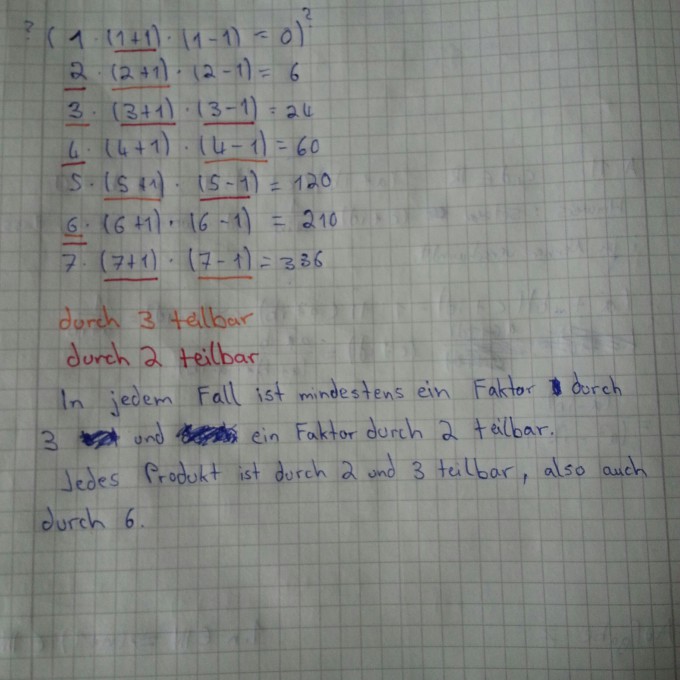 ? ( 1 · (1+1) · (1-1) = 0)?
2 · (2+1) · (2-1) = 6
3 · (3+1) · (3-1) = 24
4 · (4+1) · (4-1) = 60
5 · (5+1) · (5-1) = 120
6 · (6+1) · (6-1) = 210
7 · (7+1) · (7-1) = 336
durch 3 teilbar
durch 2 teilbar
In jedem Fall ist mindestens ein Faktor durch
3 und ein Faktor durch 2 teilbar.
Jedes Produkt ist durch 2 und 3 teilbar, also auch
durch 6.